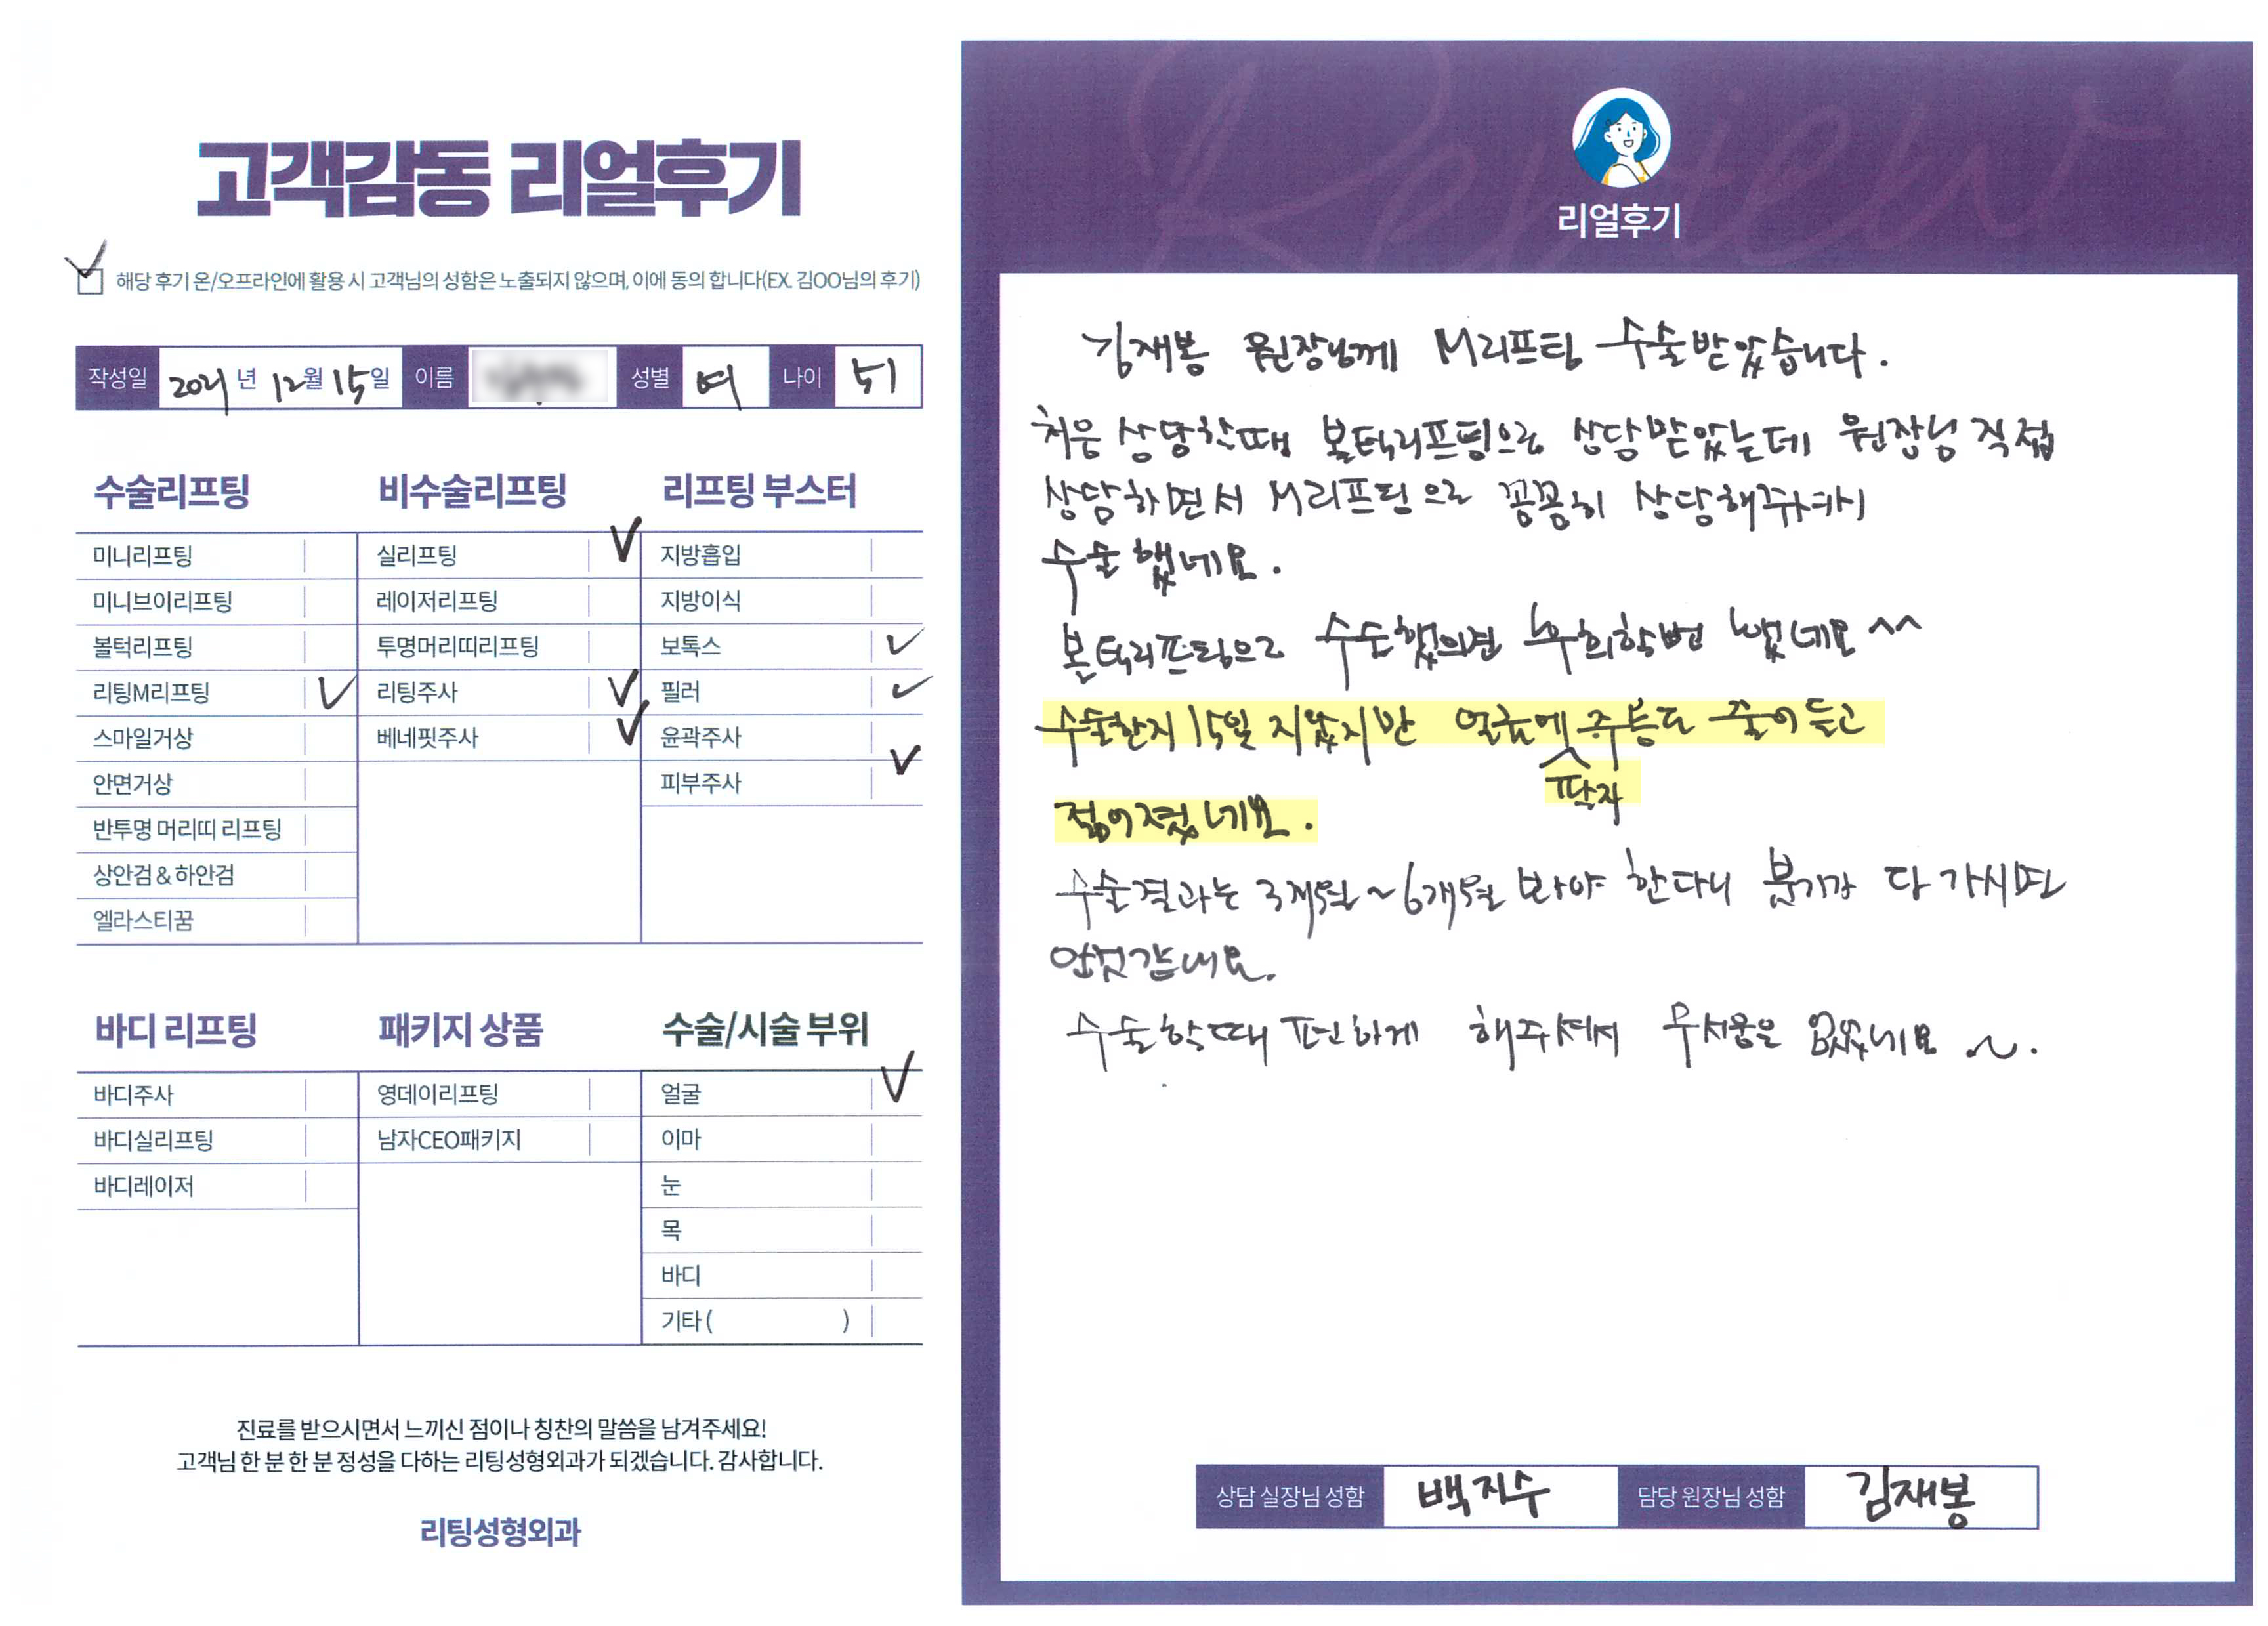 고객감동 리얼후기
해당 후기 온/오프라인에 활용 시 고객님의 성함은 노출되지 않으며, 이에 동의 합니다(EX. 김OO님의 후기)
작성일 2021년 12월 15일 이름 성별 여 나이 51
수술리프팅
미니리프팅
미니브이리프팅
볼턱리프팅
리팅M리프팅
스마일거상
안면거상
반투명 머리띠 리프팅
상안검 & 하안검
엘라스티꿈
비수술리프팅
실리프팅
레이저리프팅
투명머리띠리프팅
리팅주사
베네핏주사
리프팅 부스터
지방흡입
지방이식
보톡스
필러
윤곽주사
피부주사
바디 리프팅
바디주사
바디실리프팅
바디레이저
패키지 상품
영데이리프팅
남자CEO패키지
수술/시술 부위
얼굴
이마
눈
목
바디
기타 ( )
진료를 받으시면서 느끼신 점이나 칭찬의 말씀을 남겨주세요!
고객님 한 분 한 분 정성을 다하는 리팅성형외과가 되겠습니다. 감사합니다.
리팅성형외과
Review
리얼후기
김재봉 원장님께 M리프팅 수술받았습니다.
처음 상담할때 볼턱리프팅으로 상담받았는데 원장님 직접
상담하면서 M리프팅으로 꼼꼼히 상담해주셔서
수술했네요.
볼턱리프팅으로 수술했으면 후회할번 했네요 ^^
수술한지 15일 지났지만 얼굴에 주름도 줄어들고
팔자
젊어졌네요.
수술결과는 3개월~6개월 봐야 한다니 붓기가 다 가시면
수술할때 편하게 해주셔서 무서움은 없었네요 ~.
상담 실장님 성함 백지수 담당 원장님 성함 김재봉